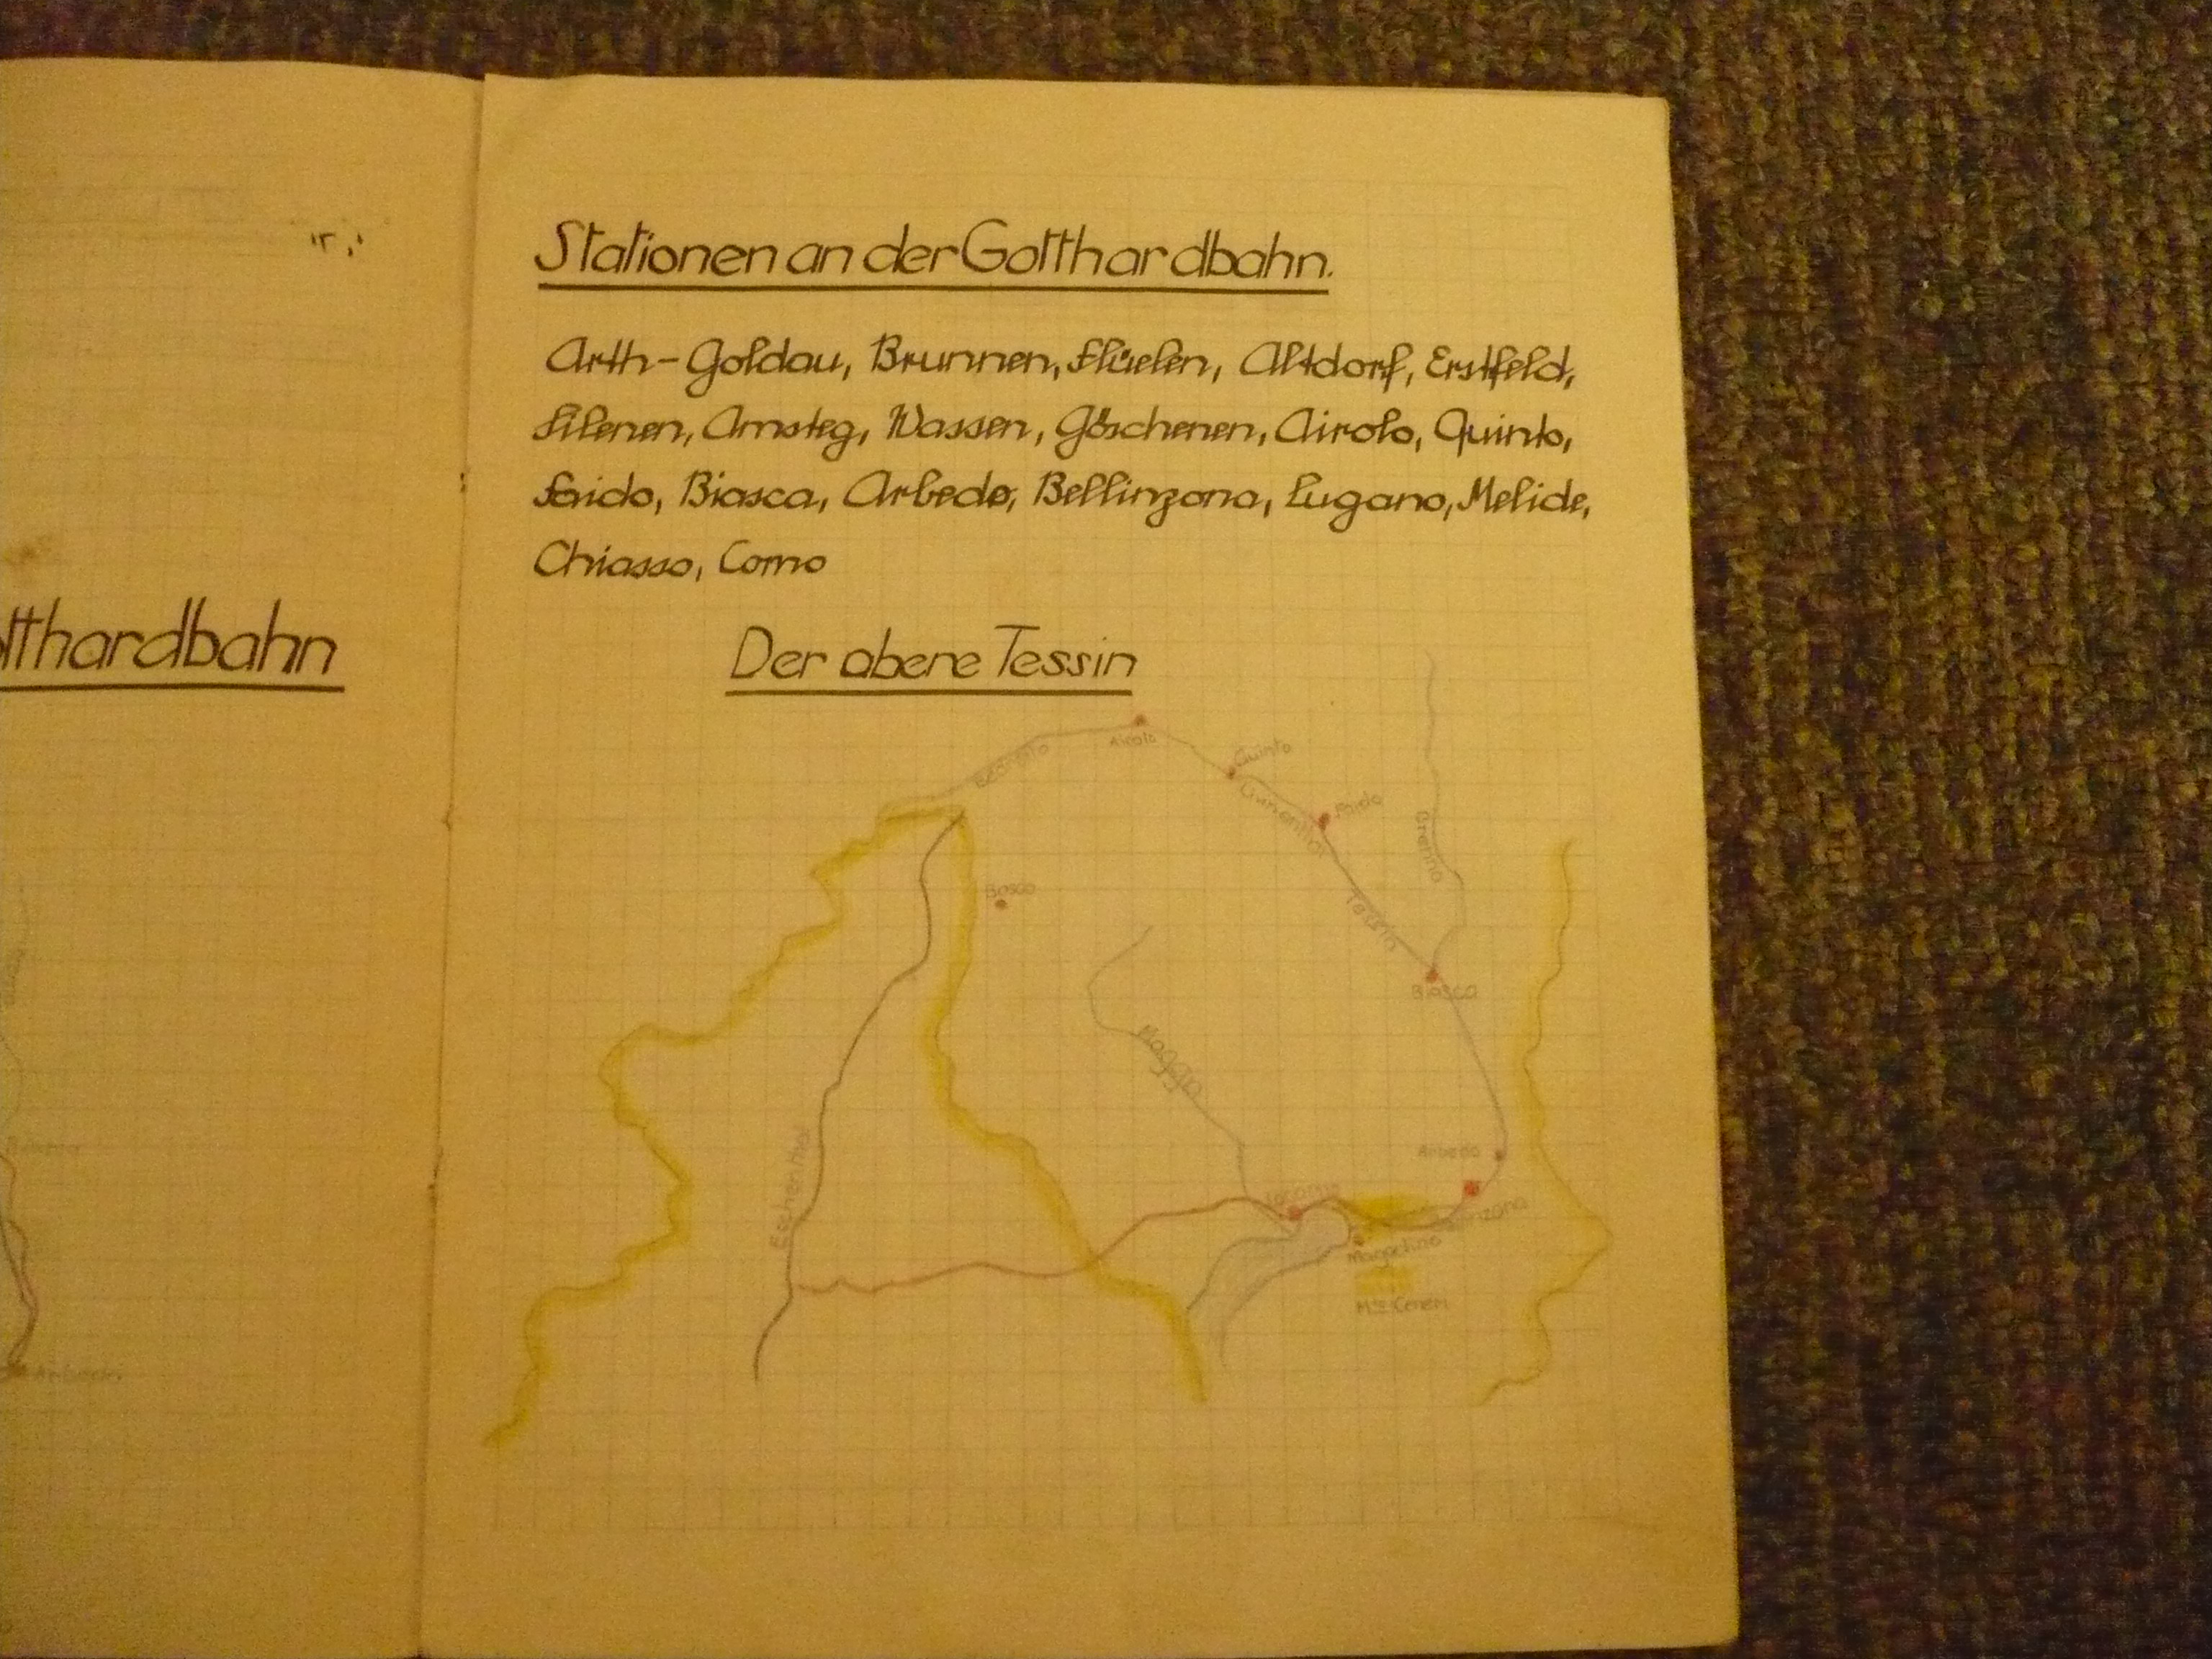 Stationen an der Gotthardbahn.
Arth-Goldau, Brunnen, Flüelen, Altdorf, Erstfeld,
Silenen, Amsteg, Wassen, Göschenen, Airolo, Quinto,
Faido, Biasca, Arbedo, Bellinzona, Lugano, Melide,
Chiasso, Como
tthardbahn
Der obere Tessin
Airolo
Quinto
Bedretto
Faido
Livinental
Brenno
Bosco
Tessin
BIASCA
Maggia
Eschental
Arbedo
Locarno
Bellinzona
Magadino
Mte Ceneri
Arbedo